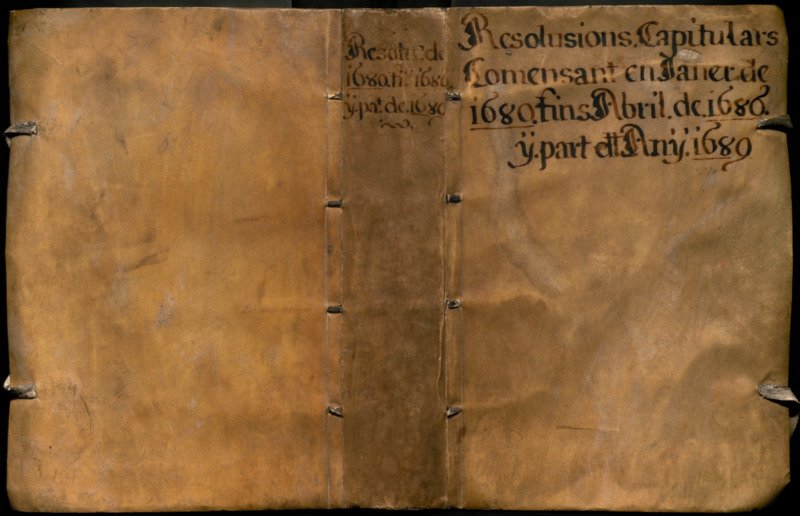 Resolus. de
1680. fi. 1686.
ÿ. pa. de. 1689
Resolusions. Capitulars
Comensant en Janer. de
1680. fins. Abril. de. 1686.
ÿ. part. dtt. Anÿ. 1689